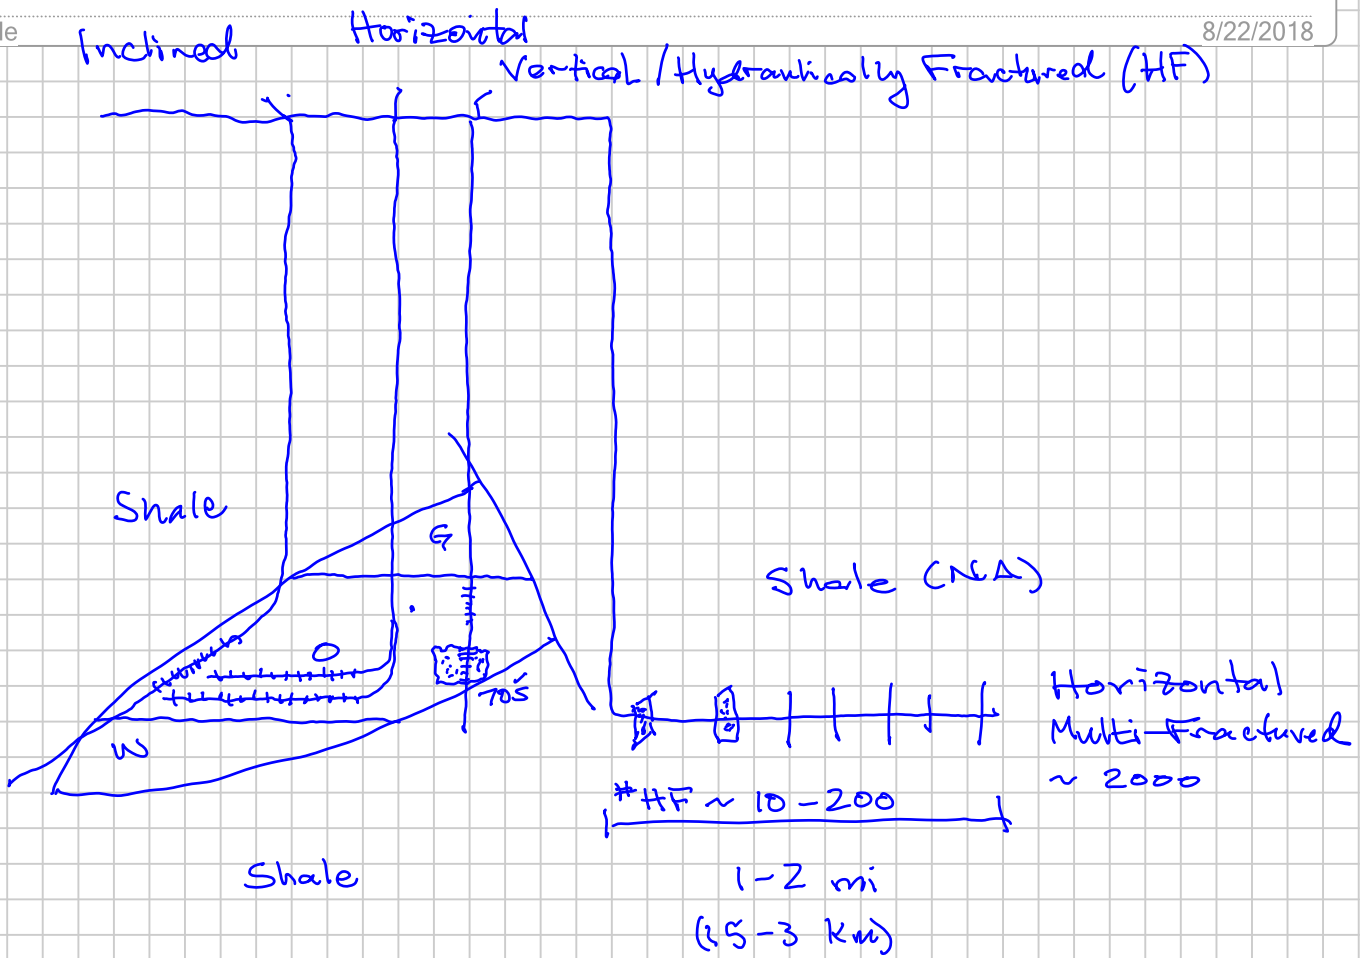 le
8/22/2018
Inclined
Horizontal
Vertical / Hydraulically Fractured (HF)
Shale
G
Shale (NA)
O
70's
W
Horizontal
Multi-Fractured
~ 2000
#HF ~ 10-200
Shale
1-2 mi
(1.5-3 km)